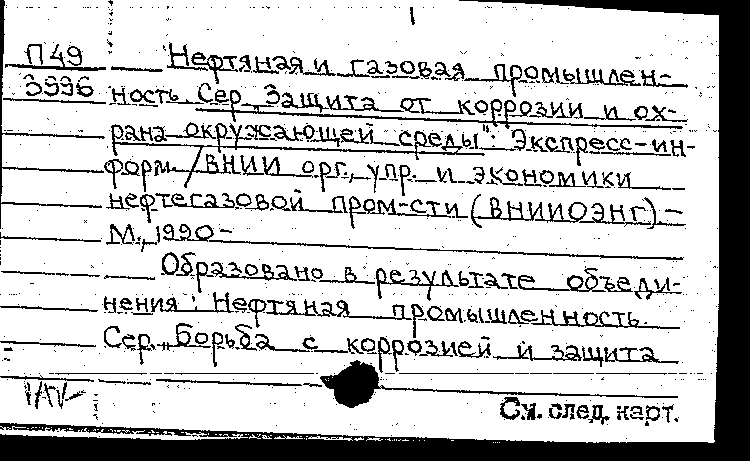 П49 Нефтяная и газовая промышлен-
3996 ность. Сер. „Защита от коррозии и ох-
рана окружающей среды": Экспресс-ин-
форм. / ВНИИ орг., упр. и экономики
нефтегазовой пром-сти (ВНИИОЭНГ). –
М., 1990 –
Образовано в результате объеди-
нения: Нефтяная промышленность.
Сер. „Борьба с коррозией и защита
См. след. карт.